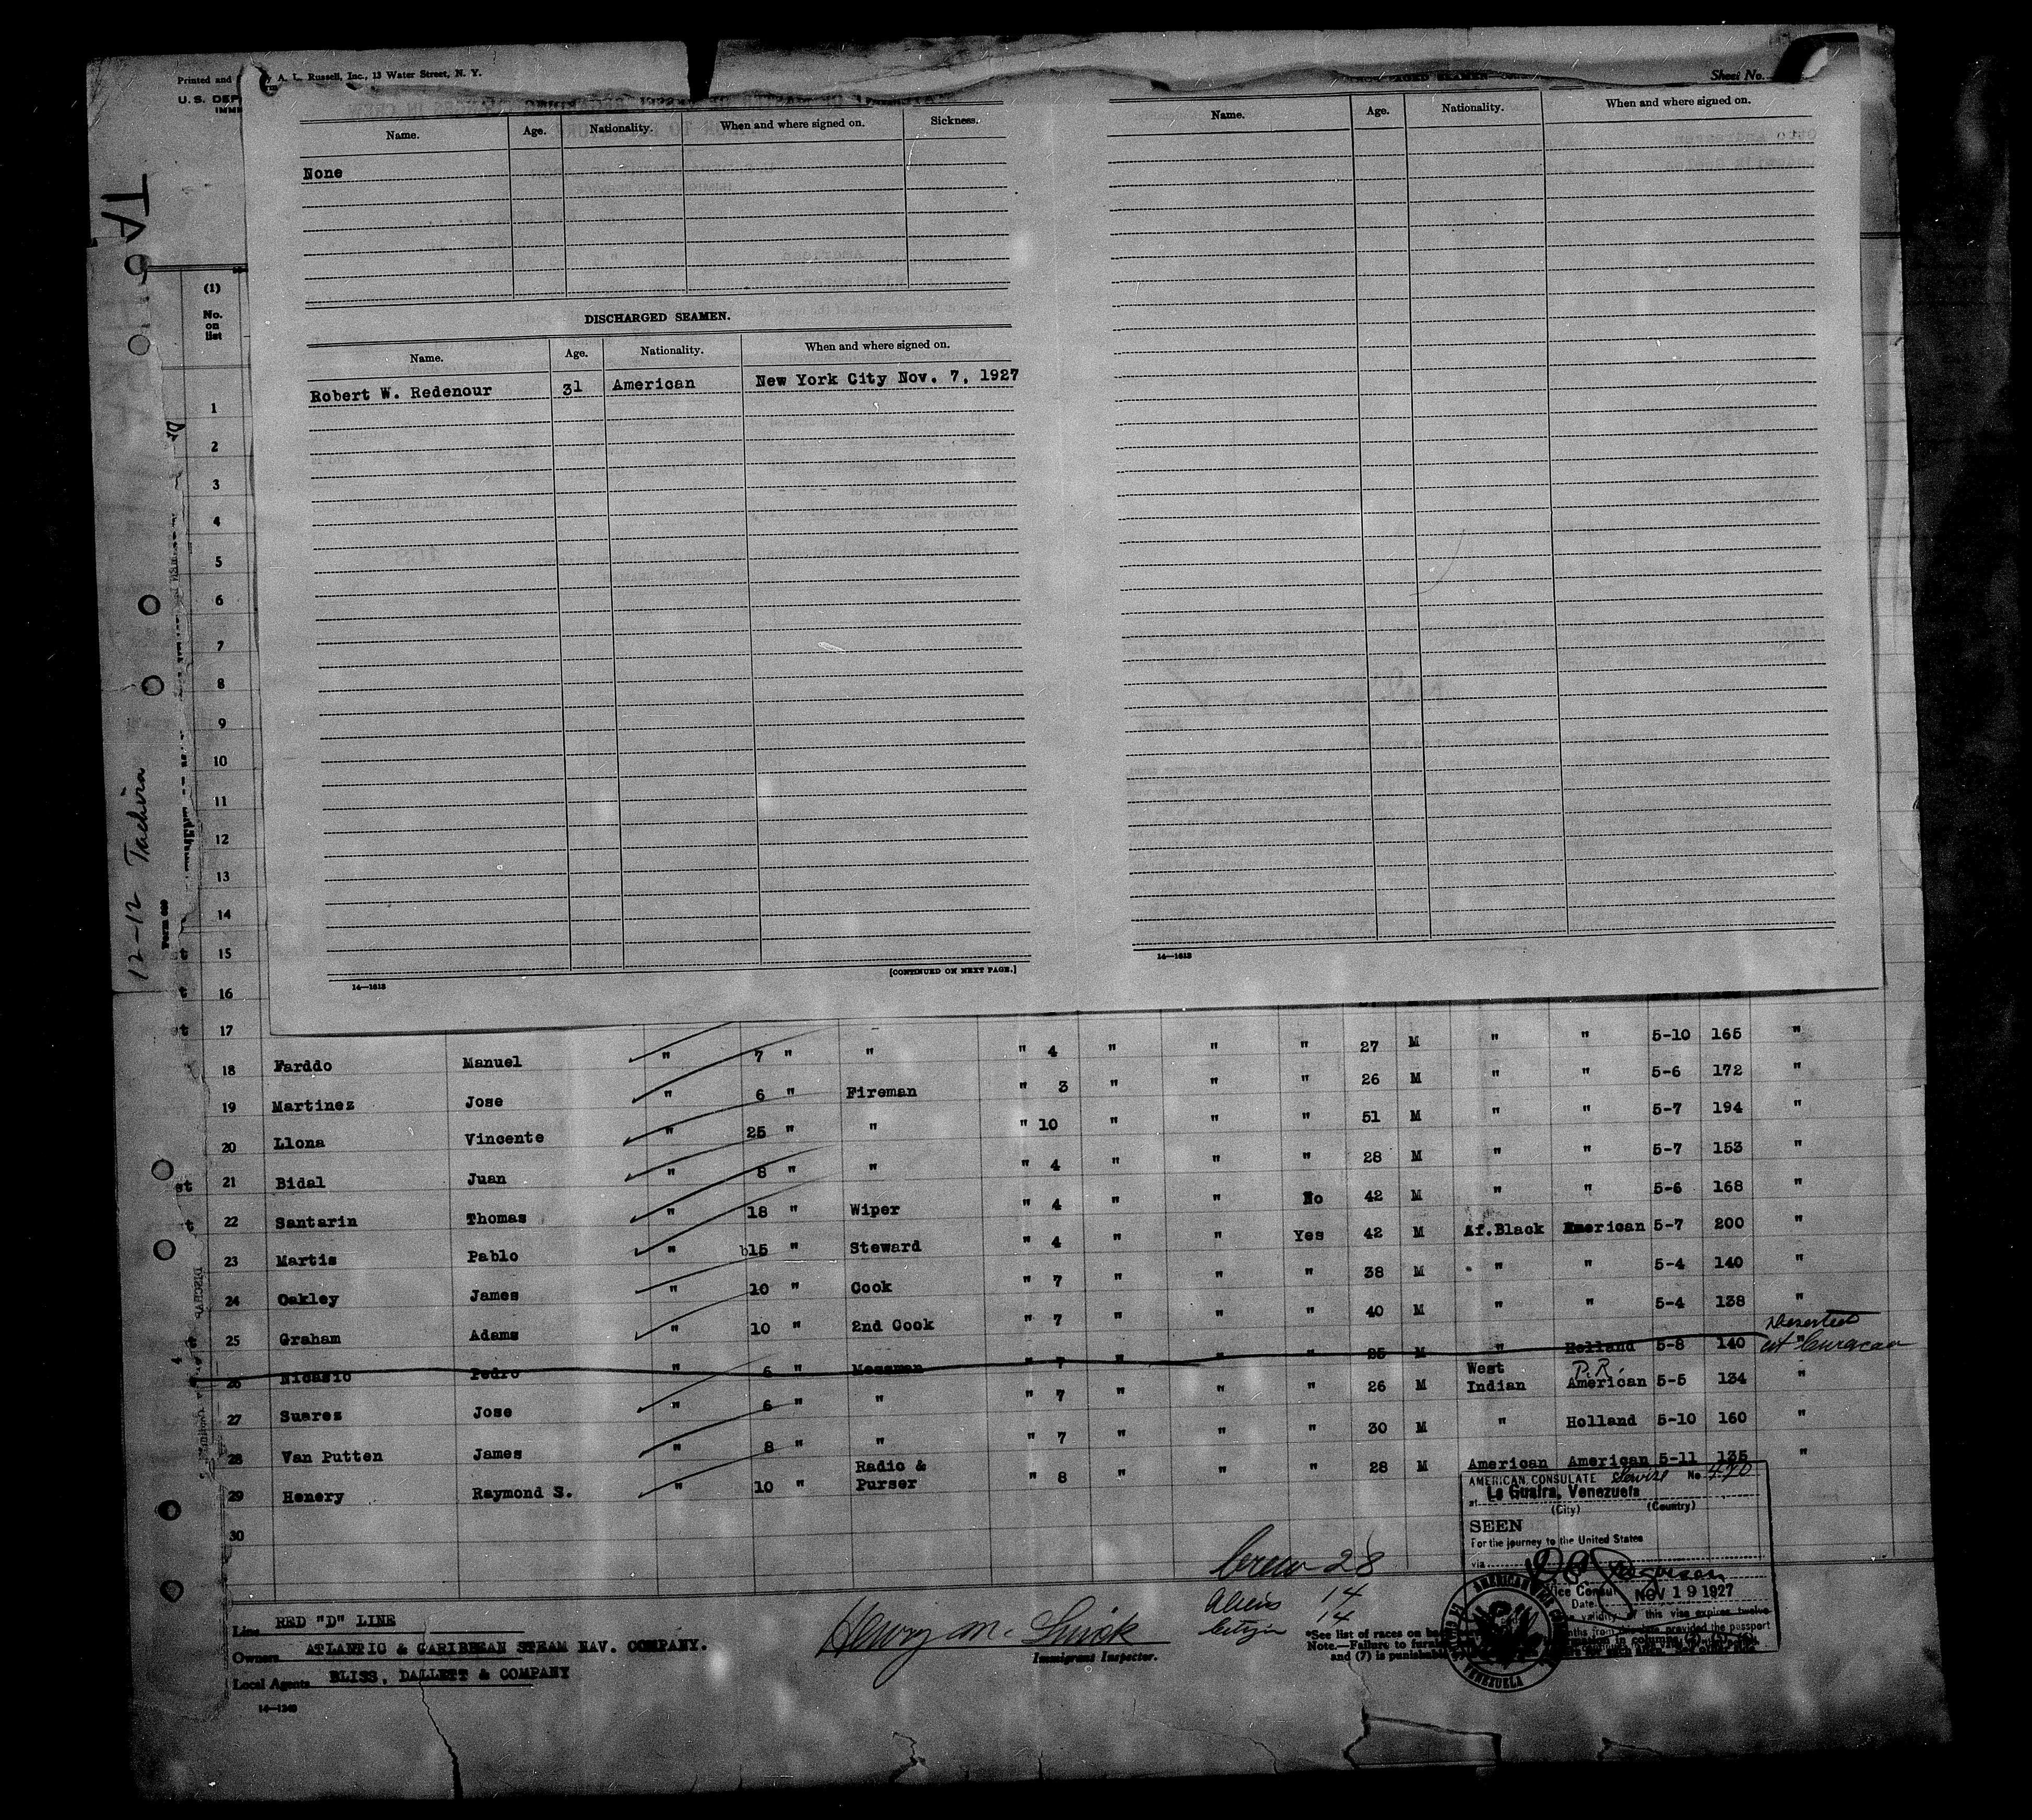 Printed and A. L. Russell, Inc., 13 Water Street, N. Y.
Sheet No.
U. S. DEP
IMM
TA
Name. Age. Nationality. When and where signed on. Sickness.
None
DISCHARGED SEAMEN.
Name. Age. Nationality. When and where signed on.
Robert W. Redenour 31 American New York City Nov. 7, 1927
[CONTINUED ON NEXT PAGE.]
14—1613
Name. Age. Nationality. When and where signed on.
14—1613
12-12 Tachira
(1)
No.
on
list
1
2
3
4
5
6
7
8
9
10
11
12
13
14
15
16
17
18 Farddo Manuel " 7 " " " 4 " " " 27 M " " 5-10 165 "
19 Martinez Jose " 6 " Fireman " 3 " " " 26 M " " 5-6 172 "
20 Llona Vincente " 25 " " " 10 " " " 51 M " " 5-7 194 "
21 Bidal Juan " 8 " " " 4 " " " 28 M " " 5-7 153 "
22 Santarin Thomas " 18 " Wiper " 4 " " No 42 M " " 5-6 168 "
23 Martis Pablo " 15 " Steward " 4 " " Yes 42 M Af.Black American 5-7 200 "
24 Oakley James " 10 " Cook " 7 " " " 38 M " " 5-4 140 "
25 Graham Adams " 10 " 2nd Cook " 7 " " " 40 M " " 5-4 138 "
26 Nicasio Pedro " 6 " Messman " 7 " " " 25 M " Holland 5-8 140 "
Deserted
at Curacao
27 Suares Jose " 6 " " " 7 " " " 26 M West Indian P.R. American 5-5 134 "
28 Van Putten James " 8 " " " 7 " " " 30 M " Holland 5-10 160 "
29 Henery Raymond S. " 10 " Radio & Purser " 8 " " " 28 M American American 5-11 135 "
30
AMERICAN CONSULATE No.
at La Guaira, Venezuela
(City) (Country)
SEEN
For the journey to the United States
via
Vice Consul
Date NOV 19 1927
validity of this visa expires twelve
months from this date provided the passport
VENEZUELA
Crew 28
Aliens 14
Citizn 14
Line RED "D" LINE
Owners ATLANTIC & CARIBBEAN STEAM NAV. COMPANY.
Local Agents BLISS, DALLETT & COMPANY
14—1240
Henry M.
Immigrant Inspector.
*See list of races on back
Note.—Failure to furnish
and (7) is punishable